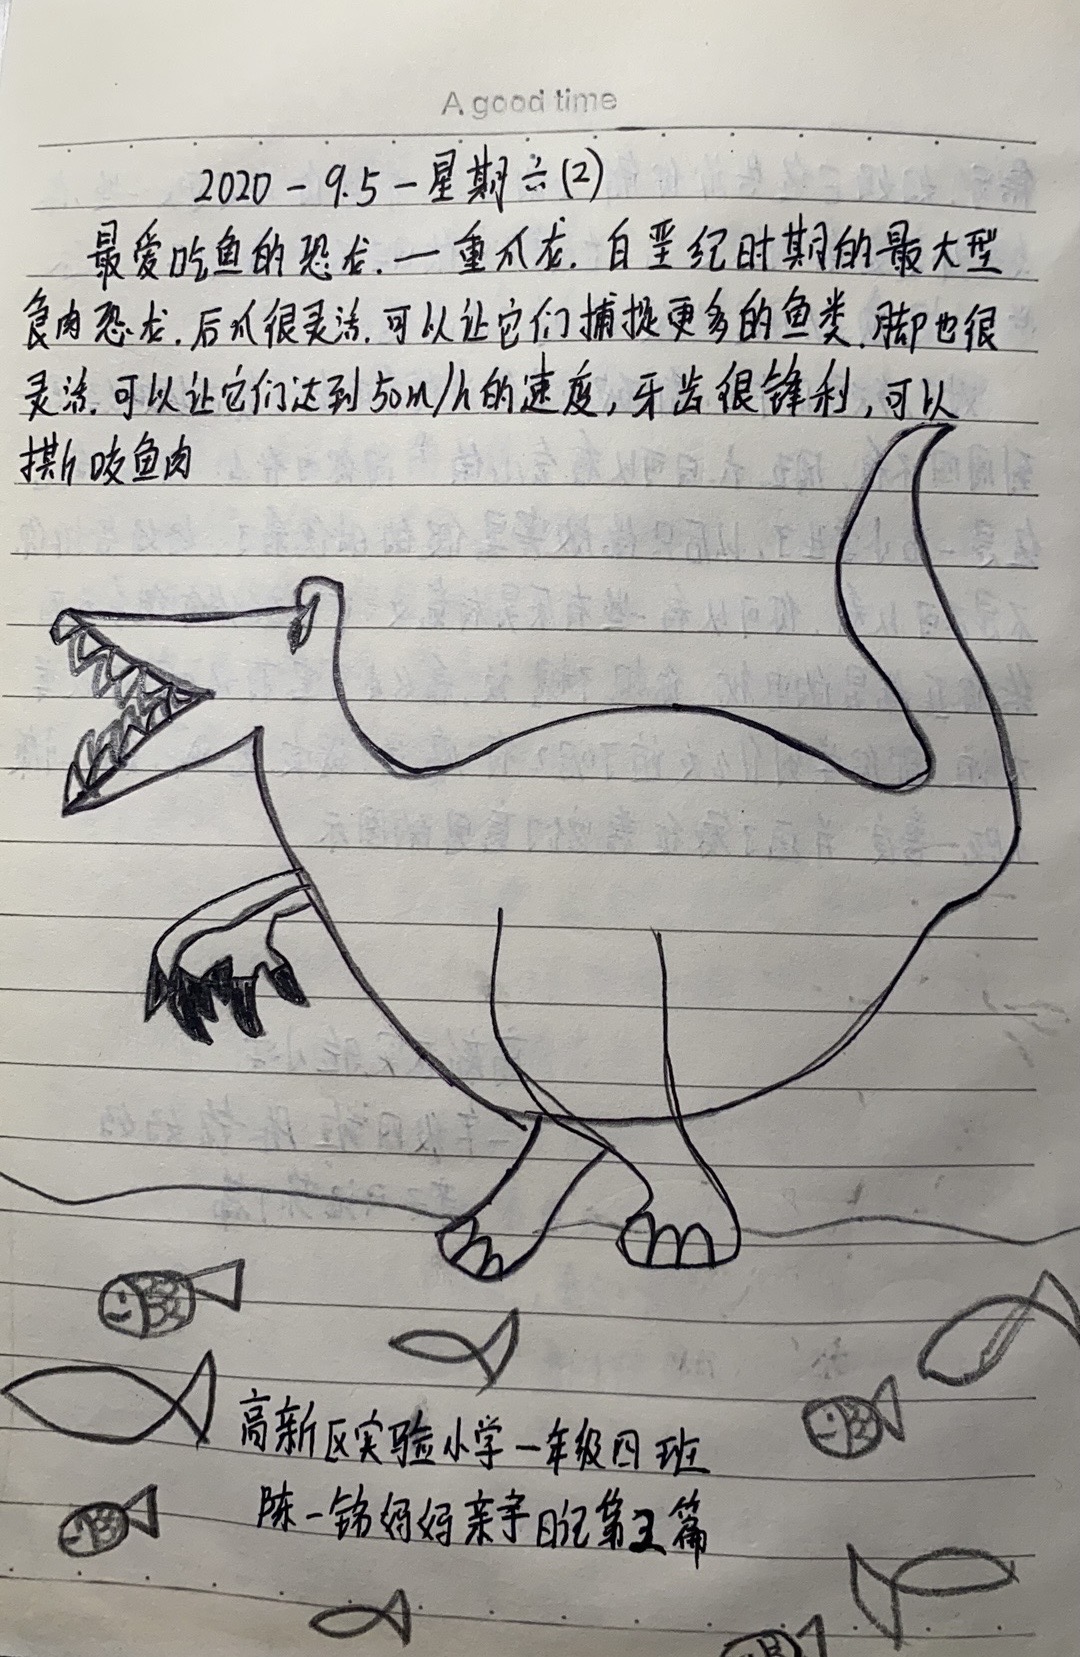 A good time
2020-9.5-星期六(2)
最爱吃鱼的恐龙.一重爪龙.白垩纪时期的最大型
食肉恐龙.后爪很灵活.可以让它们捕捉更多的鱼类.脚也很
灵活.可以让它们达到50m/h的速度,牙齿很锋利,可以
撕咬鱼肉
高新区实验小学一年级四班
陈一铭妈妈亲子日记第五篇